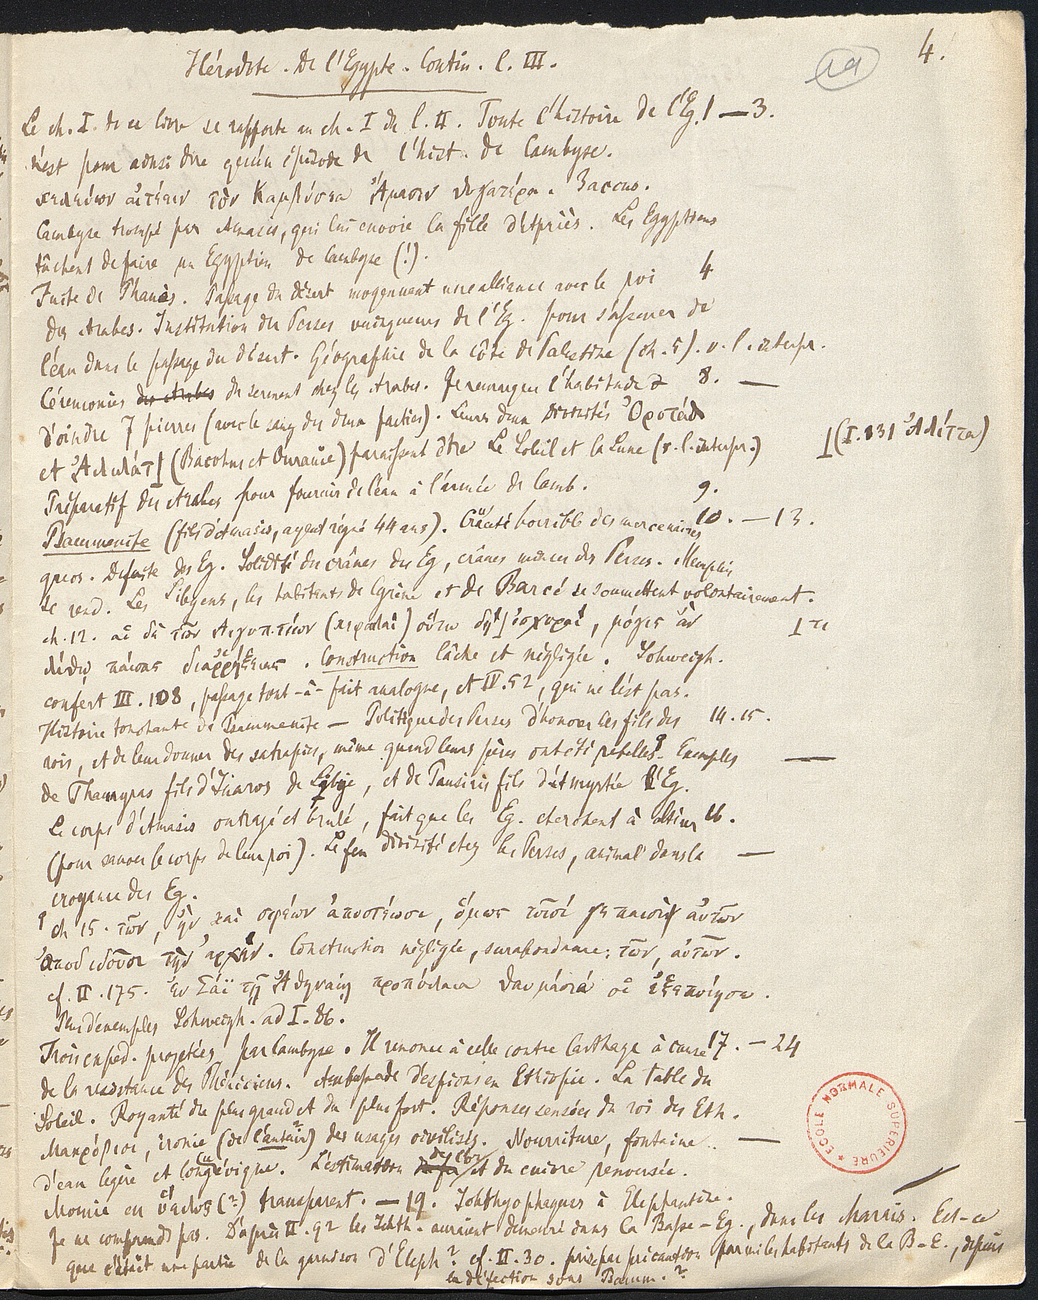 4.
Hérodote. De l'Egypte. Contin. l. III.
Le ch. I. de ce livre se rapporte au ch. I du l. II. Toute l'histoire de l'Eg. 1—3.
n'est pour ainsi dire qu'un épisode de l'hist. de Cambyse.
αἰτέειν τὸν Καμβύσεα Ἄμασιν θυγατέρα.
Cambyse trompé par Amasis, qui lui envoie la fille d'Apriès. Les Egyptiens
tâchent de faire un Egyptien de Cambyse (!).
Fuite de Phanès. Passage du désert moyennant une alliance avec le roi 4
des Arabes. Institution des Perses vainqueurs de l'Eg. pour s'assurer de
l'eau dans le passage du désert. Géographie de la côte de Palestine (ch. 5). v. l. interpr.
Cérémonies des Arabes du serment chez les Arabes. Je remarque l'habitude 8. —
d'oindre 7 pierres (avec le sang des deux parties). Leurs deux divinités Ὀροτάλ
et Ἀλιλάτ (Bacchus et Ouranie) paraissent être Le Soleil et la Lune (v. l. interpr.)
(I. 131 Ἀλίττα)
Préparatif des Arabes pour fournir de l'eau à l'armée de Camb. 9.
Psammenite (fils d'Amasis, ayant régné 44 ans). Cruauté horrible des mercenaires 10. —13.
grecs. Défaite des Eg. Solidité du crânes des Eg, crânes minces des Perses. Memphis
se rend. Les Libyens, les habitants de Cyrène et de Barcé se soumettent volontairement.
ch. 12. αἱ δὲ τῶν Αἰγυπτίων (κεφαλαὶ) οὕτω δή ἰσχυραί, μόγις ἂν
τι
λίθῳ παίσας διαρρήξειας. Construction lâche et négligée. Schweigh.
confert III. 108, passage tout-à-fait analogue, et IV. 52, qui ne l'est pas.
Histoire touchante de Psammenite — Politique des Perses d'honorer les fils des 14. 15.
rois, et de leur donner des satrapies, même quand leurs pères ont été rebelles. Exemples —
de Thannyras fils d'Inaros de Libye, et de Pausiris fils d'Amyrtée l'Eg.
Le corps d'Amasis outragé et brûlé, fait que les Eg. cherchent à 16.
(pour sauver le corps de leur roi). Le feu divinité chez les Perses, animal dans la —
croyance des Eg.
ch 15. τῶν, ἢν καὶ σφέων ἀποστέωσι, ὅμως τοῖσί γε παισὶ αὐτῶν
ἀποδιδοῦσι τὴν ἀρχήν. Construction négligée, surabondance: τῶν, αὐτῶν.
cf. II. 175. ἐν Σάϊ τῇ Ἀθηναίῃ προπύλαια θαυμάσιά οἱ ἐξεποίησε.
Plus d'exemples Schweigh. ad I. 86.
Trois exped. projetées par Cambyse. Il renonce à celle contre Carthage à cause 17. —24
de la résistance des Phéniciens. Ambassade d'espions en Ethiopie. La table du
Soleil. Royauté du plus grand et du plus fort. Réponses sensées du roi des Eth.
Μακρόβιοι, ironie (de l'auteur?) des usages civilisés. Nourriture, fontaine —
d'eau légère et longévique. L'estimation de l'or et du cuivre renversée.
Momie en ὕαλος (?) transparent. —19. Ichthyophagues à Elephantine.
Je ne comprends pas. D'après II. 92 les Ichth. auraient demeuré dans la Basse-Eg., dans les Marais. Est-ce
que c'était une partie de la garnison d'Eleph? cf. II. 30. prise par précaution parmi les habitants de la B-E., depuis
la défection sous Psamm.?
ECOLE NORMALE SUPERIEURE